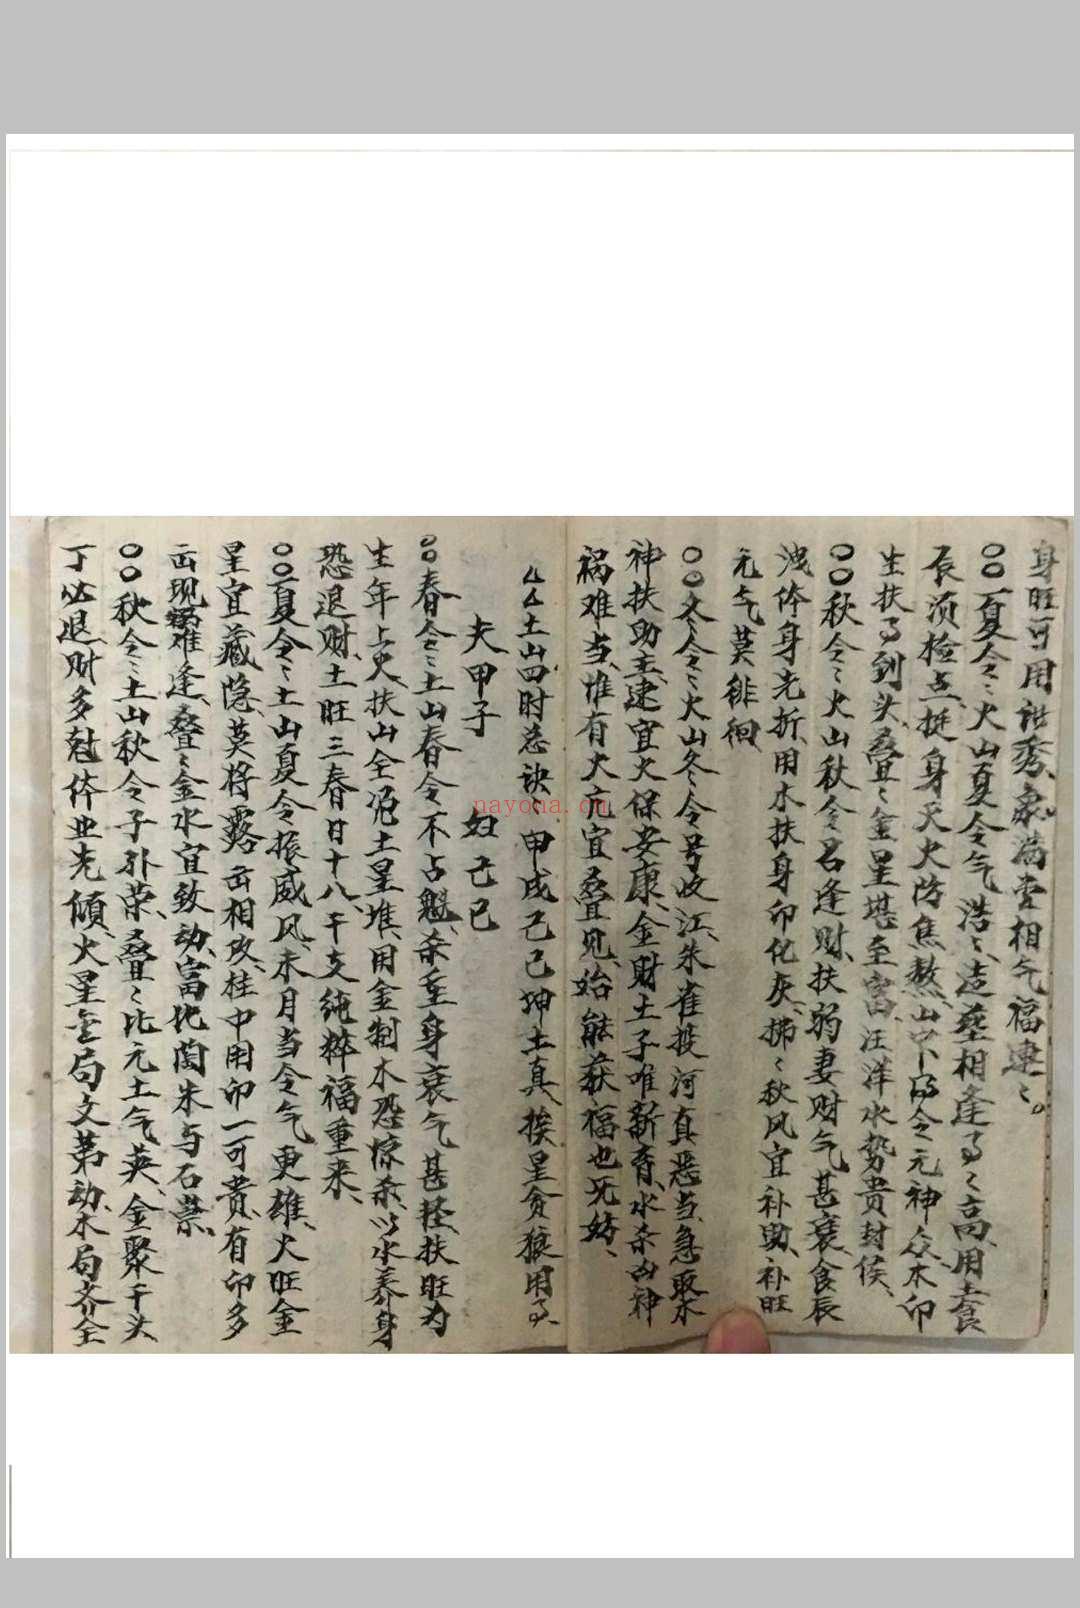 身旺可用 秀 象满 相气福連〻。
〇〇夏令〻火山夏令气浩〻造葬相逢 〻高、用
辰须检点、挺身天火防焦熬、山中 令元神众、木印
生扶 到头、叠〻金星堪至富、汪洋水势贵封侯、
〇〇秋令〻火山秋令名逢财、扶弱妻财气甚衰、食辰
洩体身先折、用木扶身印化灰、拂〻秋风宜补助、补旺
元气莫徘徊、
〇〇冬令〻火山冬令号收江、朱雀投河真恶当、急取木
神扶助主、建宜火保安康、金财土子唯新育、水杀凶神
祸难当、堆有火 宜叠见、始能获福也无妨、
厶厶土山四时总诀〻甲戌己巳坤土真、挨星贪狼用
夫甲子 妇己巳
〇〇春令〻土山春令不占魁、杀重身衰气甚轻、扶旺为
生年上火、扶山全 土星堆、用金制木恐惊杀、以水养身
恐退财、土旺三春日十八、干支纯粹福重来、
〇〇夏令〻土山夏令振威风、未月当令气更雄、火旺金
星宜藏隐、莫将露 相攻、柱中用印一可贵、有印多
 现 难逢、叠〻金水宜致动、富比陶朱与石崇、
〇〇秋令〻土山秋令子外荣、叠〻比元土气英、金聚干头
丁必退、财多尅体业先倾、火星 局文第动、木局齐全
nayona.cn